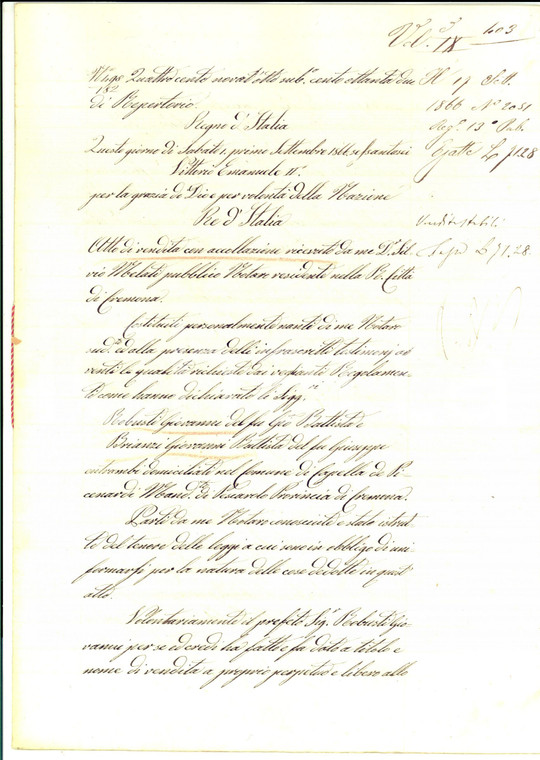 Vol. IX 403
Quattro cento novant'otto
di Repertorio.
Regno d'Italia
Questo giorno di Sabato, primo Settembre 1866, sessantasei
Vittorio Emanuele II°
per la grazia di Dio e per volontà della Nazione
Re d'Italia
Atto di vendita con accettazione ricevuto da me D.r Sil-
vio Melati pubblico Notaro residente nella R. Città
di Cremona.
Costituiti personalmente nanti di me Notaro
sud.o ed alla presenza delli infrascritti testimonj a-
venti le qualità richieste dai vegliante Regolamen-
to come hanno dichiarato li Sigg.ri
Robusti Giovanni del fu Gio Battista e
Brianzi Giovanni Battista del fu Giuseppe
entrambi domiciliati nel Comune di Capella de Pi-
cenardi Mand.to di Pescarolo Provincia di Cremona.
Parti da me Notaro conosciute e state istrut-
te del tenore delle leggi a cui sono in obbligo di uni-
formarsi per la natura delle cose dedotte in quest'
atto.
Volontariamente il prefato Sig.r Robusti Gio-
vanni per se ed eredi ha fatto e fa dato a titolo e
nome di vendita a proprio perpetuo e libero allo
Il 19 Sett.
1866 N° 2051
Reg.o 13° Pub.
Esatte L 71.28
Vendita stabili
L 71.28